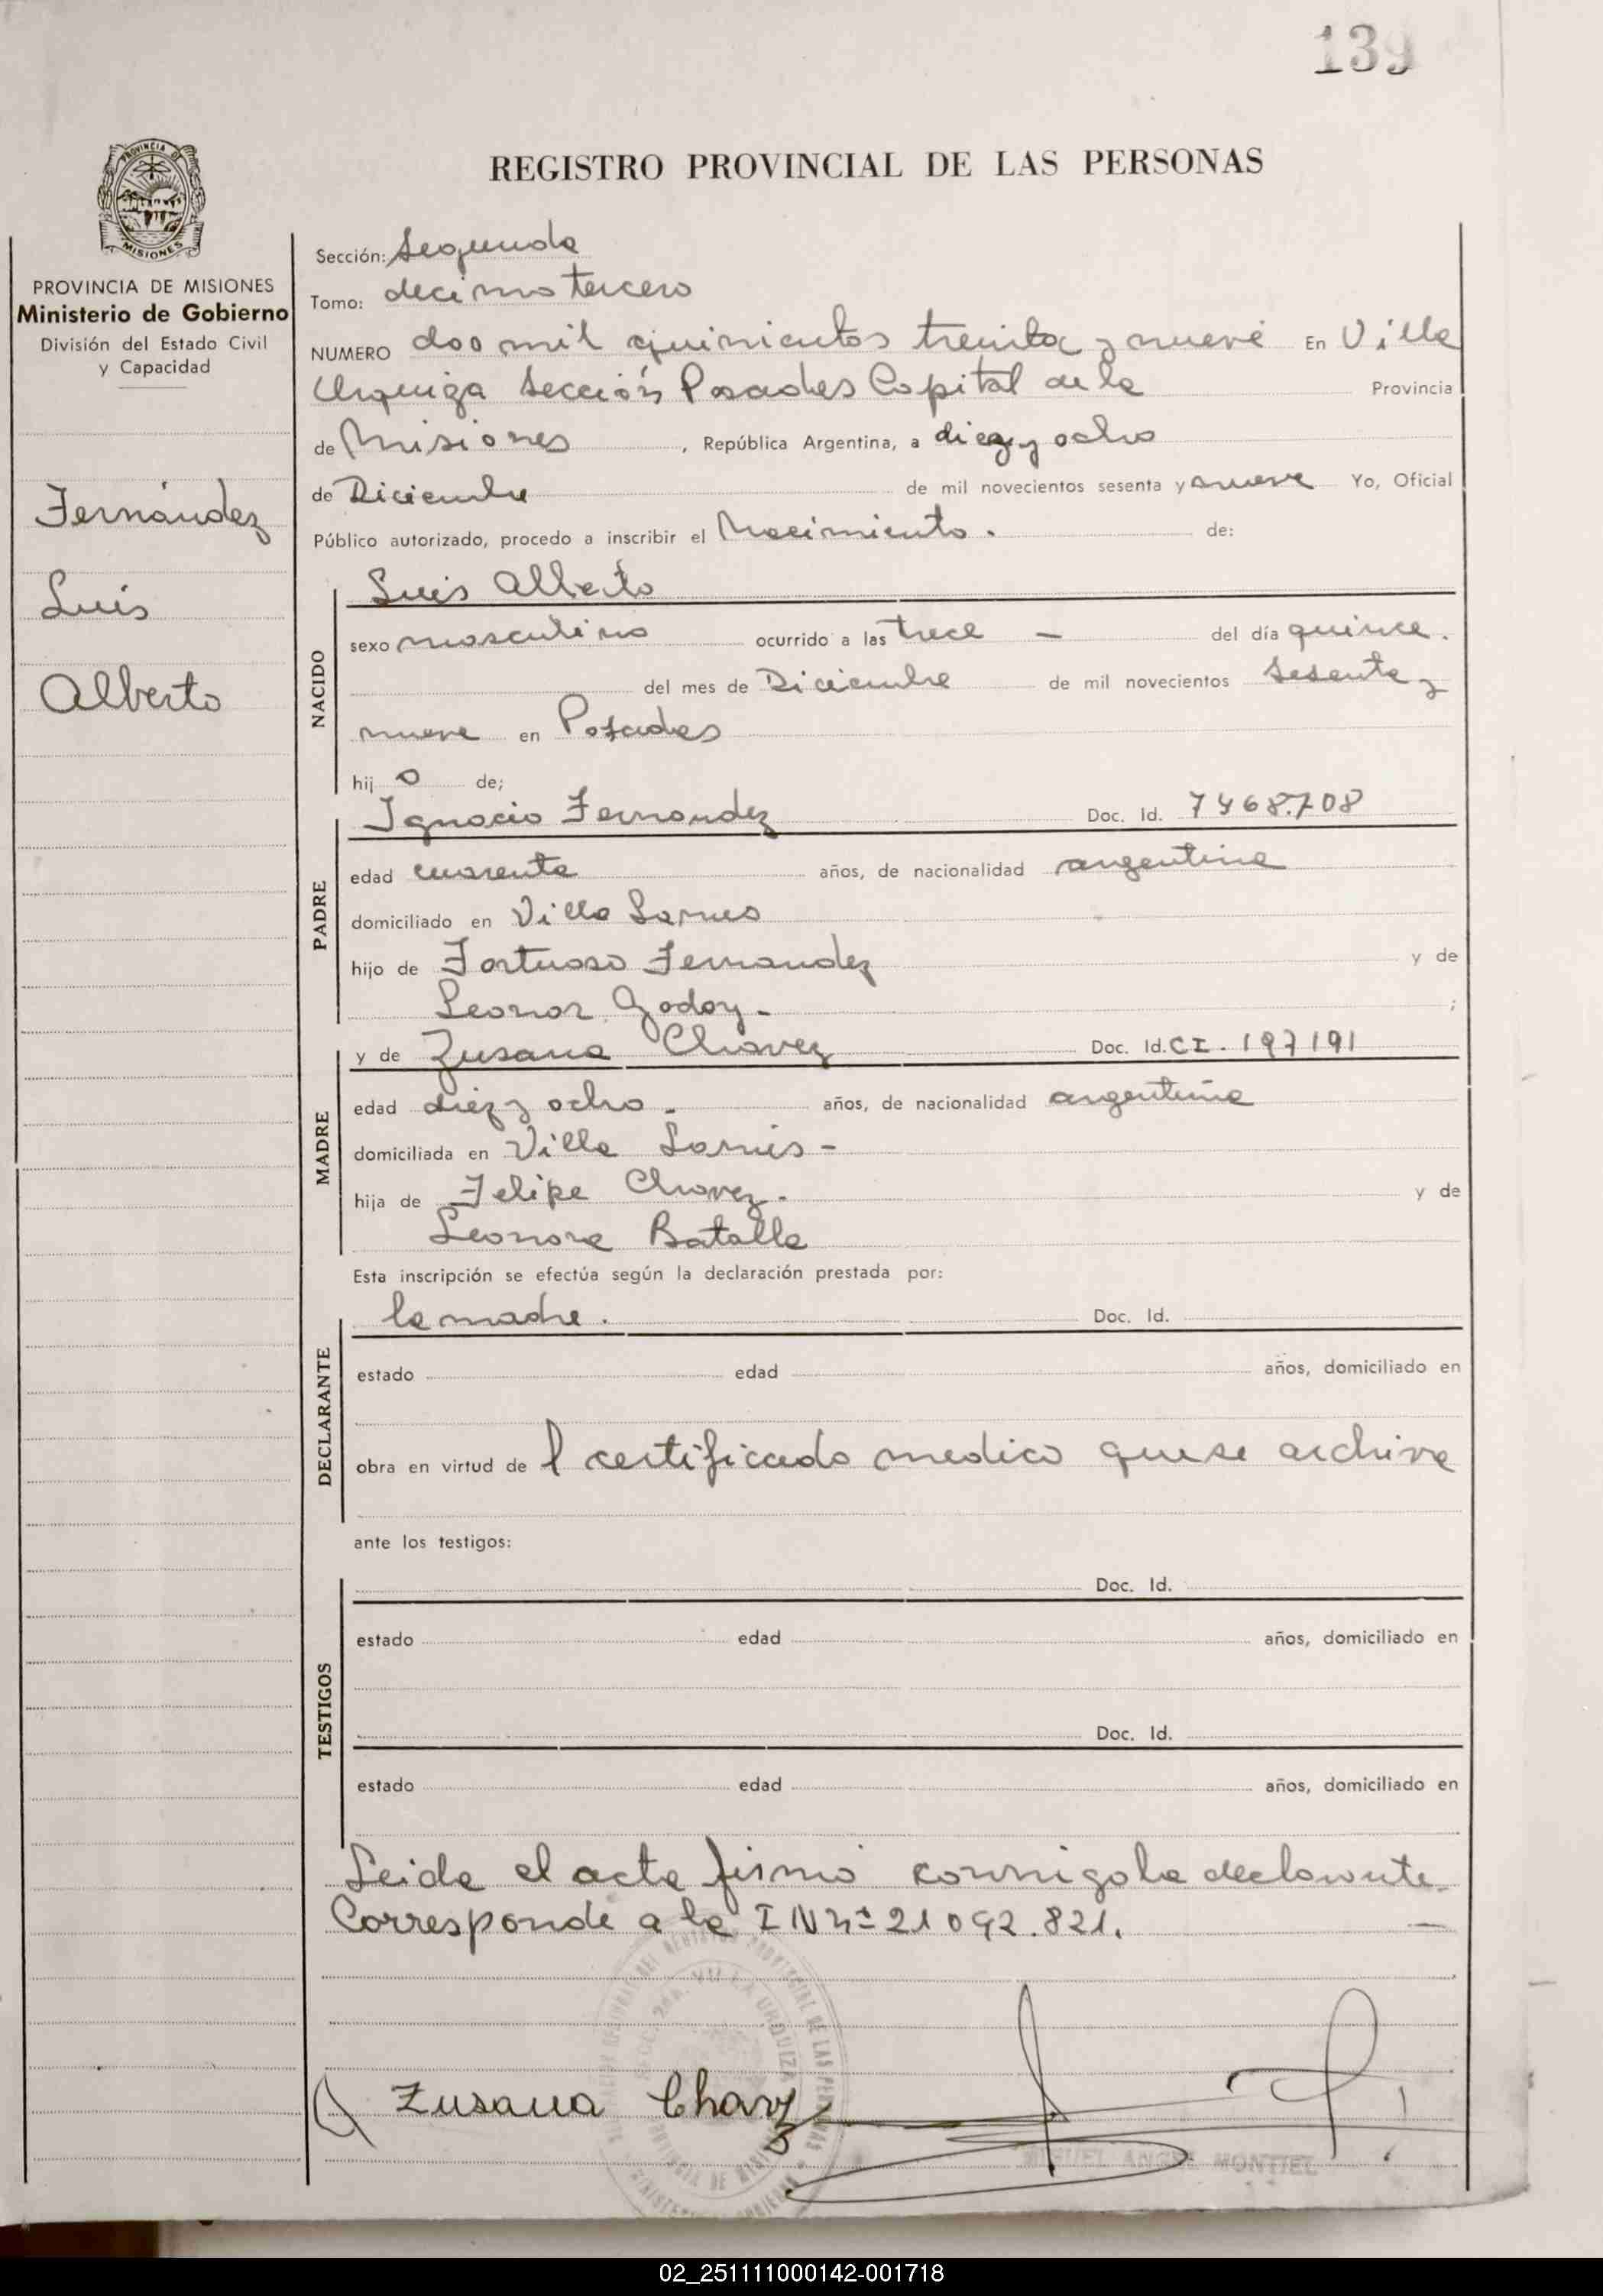 139
REGISTRO PROVINCIAL DE LAS PERSONAS
PROVINCIA DE MISIONES
Ministerio de Gobierno
División del Estado Civil
y Capacidad
Fernández
Luis
Alberto
Sección: Segunda
Tomo: decimo tercero
NUMERO dos mil quinientos treinta y nueve En Villa
Urquiza Sección Posadas Capital de la Provincia
de Misiones, República Argentina, a diez y ocho
de Diciembre de mil novecientos sesenta y nueve Yo, Oficial
Público autorizado, procedo a inscribir el Nacimiento. de:
NACIDO
Luis Alberto
sexo masculino ocurrido a las trece - del día quince.
del mes de Diciembre de mil novecientos sesenta y
nueve en Posadas
hij o de;
PADRE
Ignacio Fernandez Doc. Id. 7468.708
edad cuarenta años, de nacionalidad argentina
domiciliado en Villa Lanus
hijo de Fortuoso Fernandez y de
Leonor Godoy - ;
MADRE
y de Zusana Chavez Doc. Id. CI. 197191
edad diez y ocho - años, de nacionalidad argentina
domiciliada en Villa Lanus -
hija de Felipe Chavez. y de
Leonora Batalla
Esta inscripción se efectúa según la declaración prestada por:
DECLARANTE
la madre. Doc. Id.
estado edad años, domiciliado en
obra en virtud de l certificado medico que se archiva
ante los testigos:
TESTIGOS
Doc. Id.
estado edad años, domiciliado en
Doc. Id.
estado edad años, domiciliado en
Leida el acta firmó conmigo la declarante.
Corresponde a la I N nº 21092.821. —
Zusana Chavz
MIGUEL ANGEL MONTIEL
02_251111000142-001718